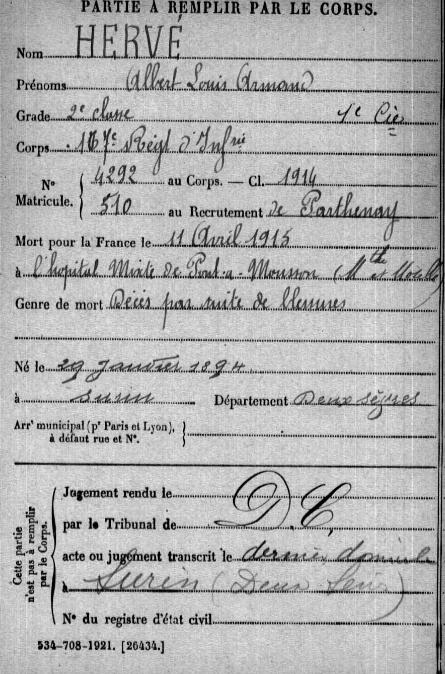 PARTIE À REMPLIR PAR LE CORPS.
Nom HERVÉ
Prénoms Albert Louis Armand
Grade 2e classe 1e Cie
Corps 167e Régt d'Infrie
Nº Matricule. 4292 au Corps. — Cl. 1914
510 au Recrutement de Parthenay
Mort pour la France le 11 Avril 1915
à l'hopital Mixte de Pont-a-Mousson (Mthe et Molle)
Genre de mort Décès par suite de blessures
Né le 29 Janvier 1894
à Surin Département Deux Sèvres
Arrt municipal (pr Paris et Lyon),
à défaut rue et Nº.
Cette partie n'est pas à remplir par le Corps.
Jugement rendu le
par le Tribunal de D.C.
acte ou jugement transcrit le dernier domicile
à Surin (Deux Sèvres)
Nº du registre d'état civil
534-708-1921. [26434.]